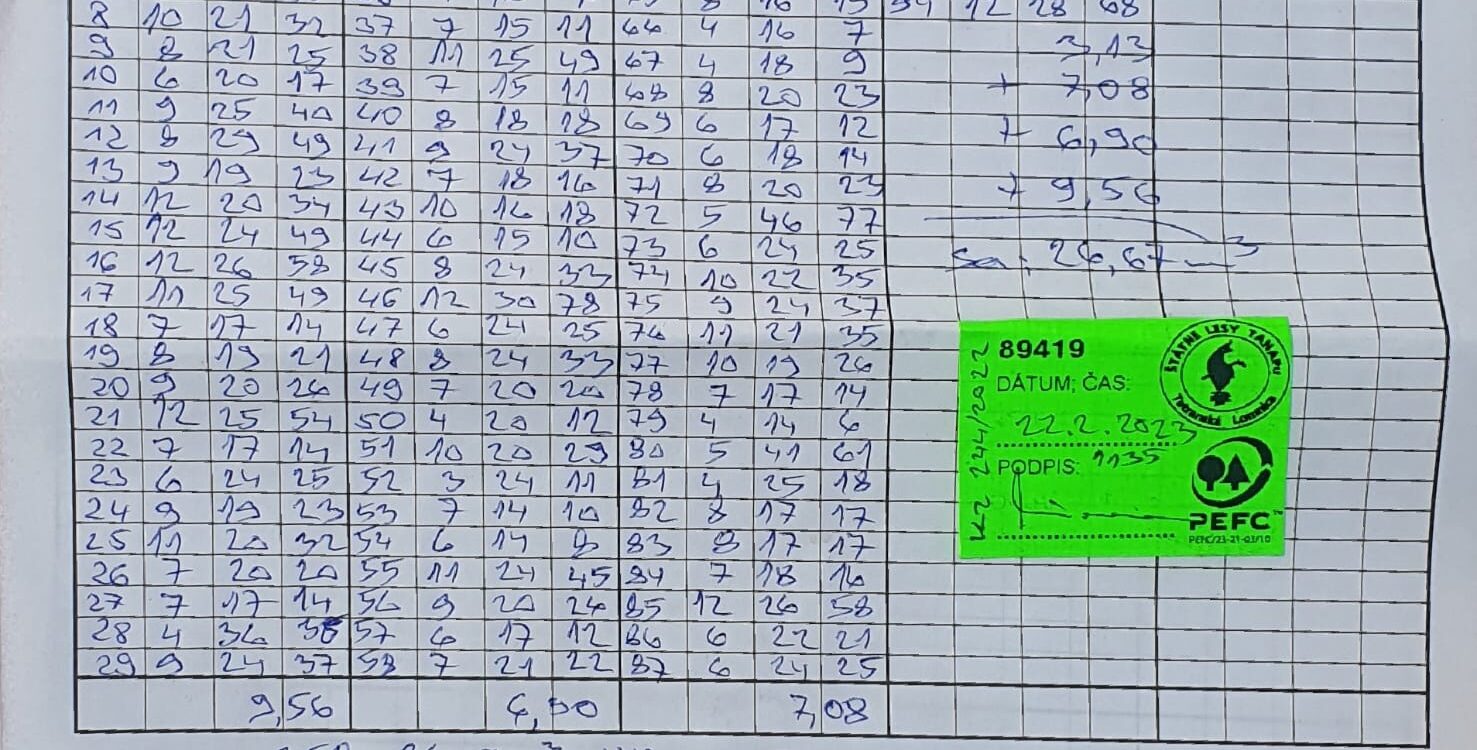 8 10 21 32 37 7 15 11 66 4 16 7
9 8 21 25 38 11 25 49 67 4 18 9 3,13
10 6 20 17 39 7 15 11 68 8 20 23 + 7,08
11 9 25 40 40 8 18 18 69 6 17 12 + 6,90
12 8 29 49 41 9 24 37 70 6 18 14
13 9 19 23 42 7 18 16 71 8 20 23 + 9,56
14 12 20 34 43 10 16 18 72 5 46 77
15 12 24 49 44 6 15 10 73 6 24 25 Sa: 26,67 m3
16 12 26 58 45 8 24 33 74 10 22 35
17 11 25 49 46 12 30 78 75 9 24 37
18 7 17 14 47 6 24 25 76 11 21 35
19 8 19 21 48 8 24 33 77 10 19 26
20 9 20 26 49 7 20 20 78 7 17 14
21 12 25 54 50 4 20 12 79 4 14 6
22 7 17 14 51 10 20 29 80 5 41 61
23 6 24 25 52 3 24 11 81 4 25 18
24 9 19 23 53 7 14 10 82 8 17 17
25 11 20 32 54 6 14 8 83 8 17 17
26 7 20 20 55 11 24 45 84 7 18 16
27 7 17 14 56 9 20 26 85 12 26 58
28 4 36 38 57 6 17 12 86 6 22 21
29 9 24 37 58 7 21 22 87 6 24 25
9,56 6,90 7,08
89419
ŠTÁTNE LESY TANAPu
Tatranská Lomnica
DÁTUM; ČAS:
22.2.2023
PODPIS: 1135
244/2022
PEFC™
PEFC/23-21-03/10